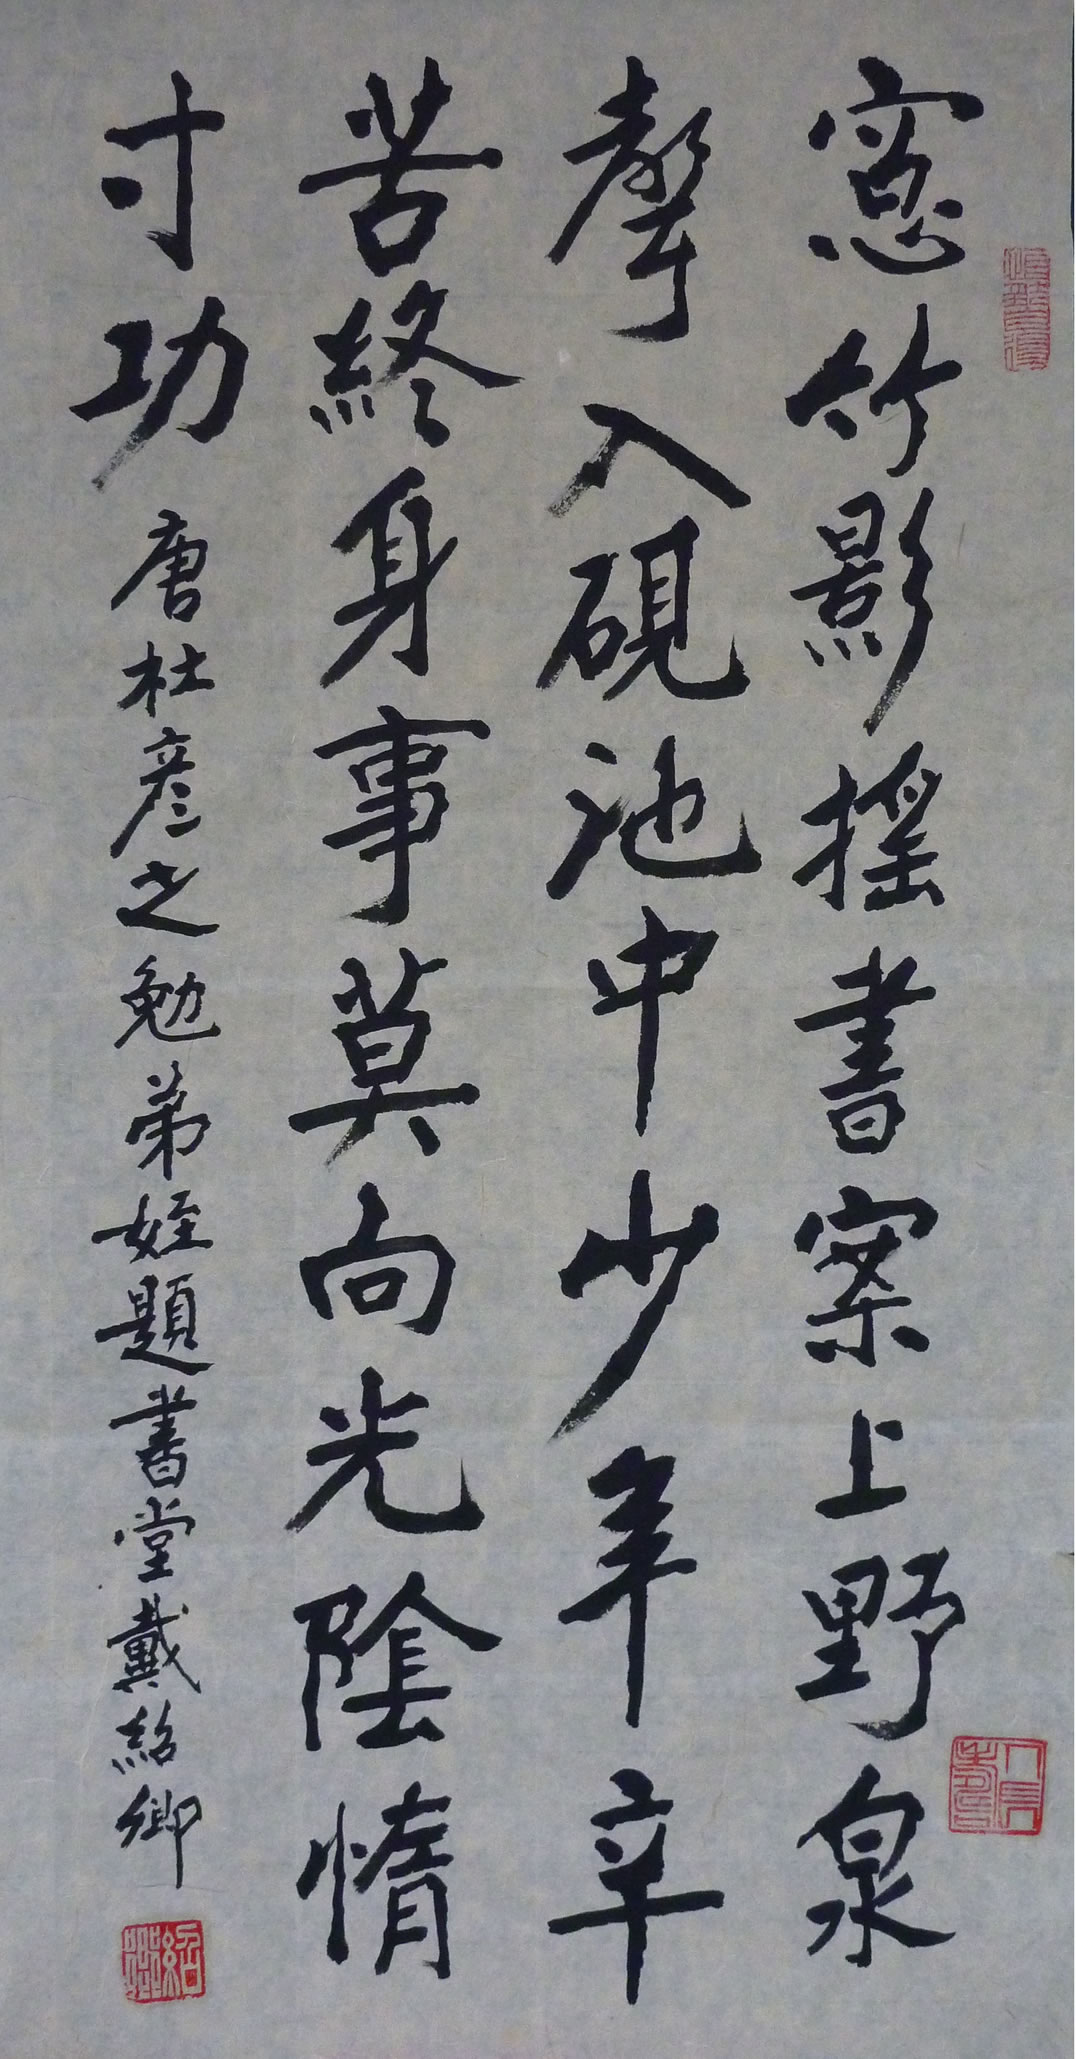 窻竹影搖書案上野泉
聲入硯池中少年辛
苦終身事莫向光陰惰
寸功
唐杜彥之勉弟姪題書堂戴紹卿